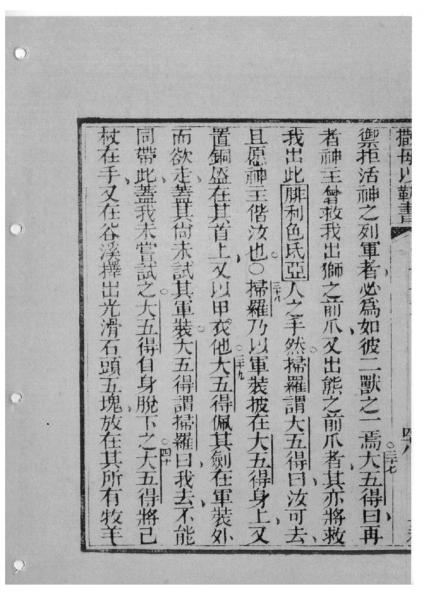 撒母以勒書
禦拒活神之列軍者必為如彼二獸之一焉三十七大五得曰再
者神主曾救我出獅之前爪又出熊之前爪者其亦將救
我出此腓利色氏亞人之手然掃羅謂大五得曰汝可去
且愿神主偕汝也○三十八掃羅乃以軍裝披在大五得身上又
置銅盔在其首上又以甲衣他三十九大五得佩其劍在軍裝外
而欲走蓋其尚未試其軍裝大五得謂掃羅曰我去不能
同帶此蓋我未嘗試之大五得自身脫下之四十大五得將己
杖在手又在谷溪擇出光滑石頭五塊放在其所有牧羊